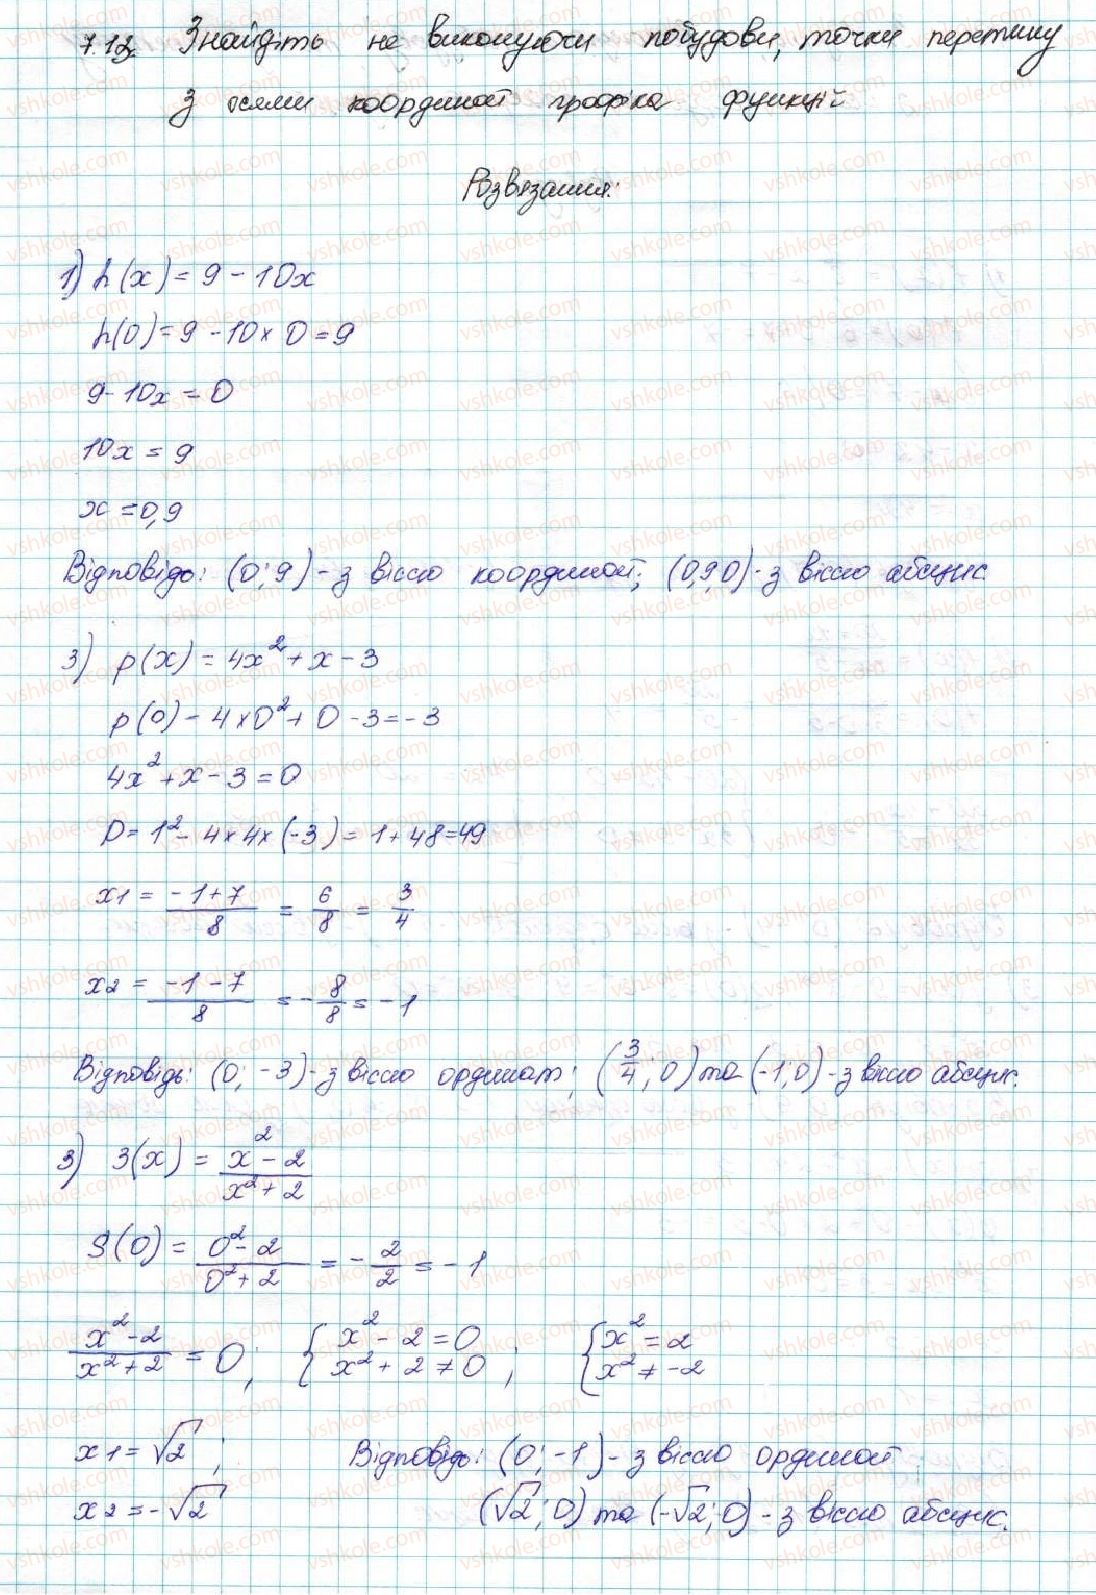 7.12 Знайдіть не виконуючи побудови, точки перетину
з осями координат графіка функцій
Розвязання:
1) h(x) = 9 - 10x
h(0) = 9 - 10 × 0 = 9
9 - 10x = 0
10x = 9
x = 0,9
Відповідь: (0; 9) - з віссю координат; (0,9 0) - з віссю абсцис.
3) p(x) = 4x² + x - 3
p(0) - 4 × 0² + 0 - 3 = - 3
4x² + x - 3 = 0
D = 1² - 4 × 4 × (-3) = 1 + 48 = 49
x1 = (-1+7)/8 = 6/8 = 3/4
x2 = (-1-7)/8 = - 8/8 = - 1
Відповідь: (0; -3) - з віссю ординат; (3/4; 0) та (-1; 0) - з віссю абсцис.
3) 3(x) = (x² - 2)/(x² + 2)
S(0) = (0² - 2)/(0² + 2) = - 2/2 = - 1
(x² - 2)/(x² + 2) = 0; { x² - 2 = 0 x² + 2 ≠ 0 ; { x² = 2 x² ≠ -2
x1 = √2 ; Відповідь: (0; -1) - з віссю ординат ;
x2 = -√2 (√2; 0) та (-√2; 0) - з віссю абсцис.